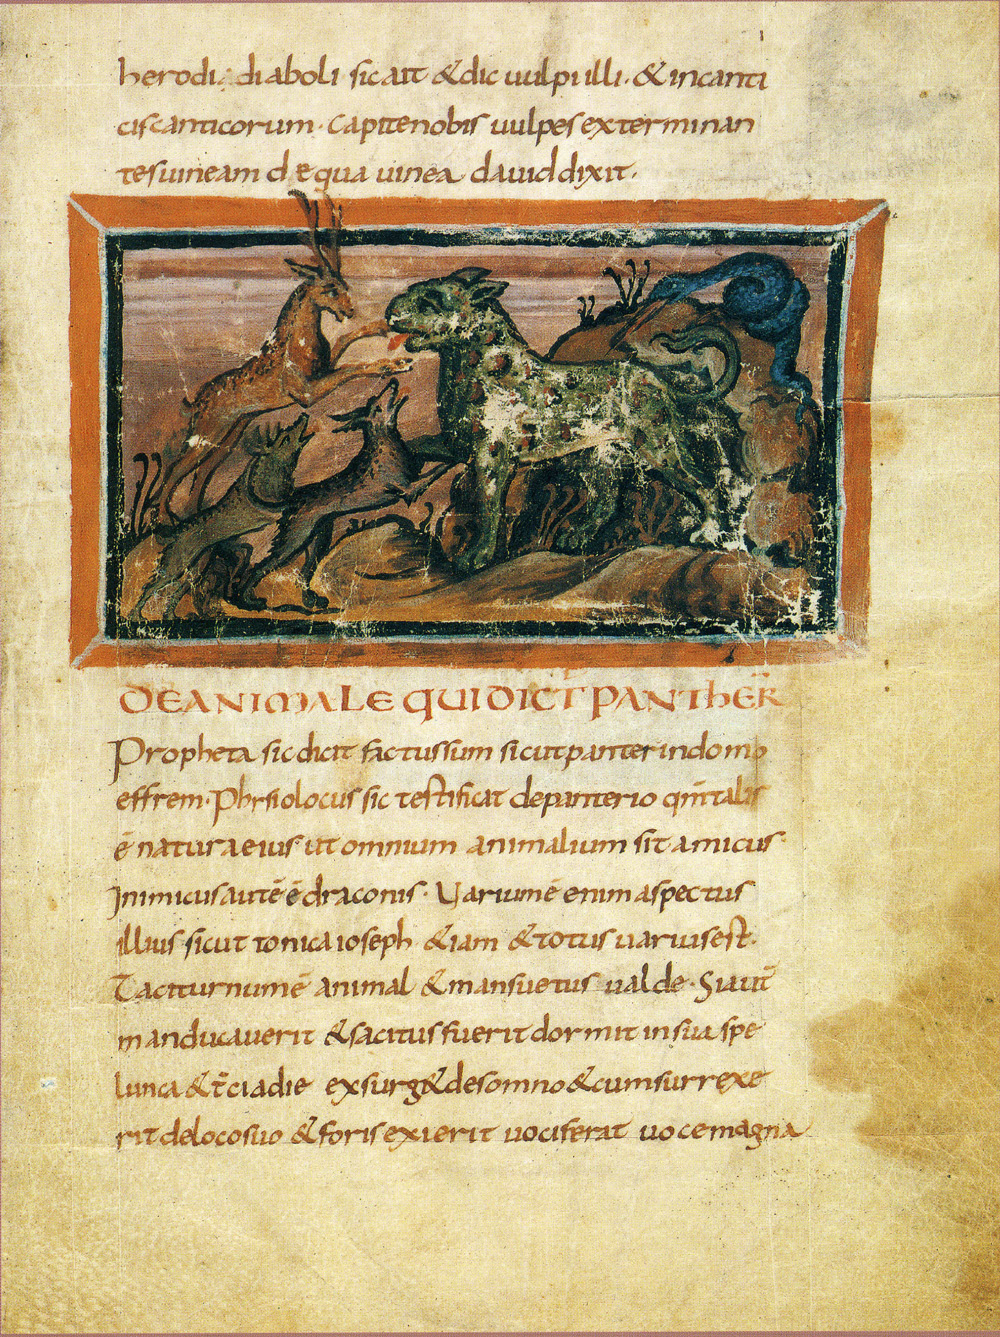 herodi diaboli sicait &dic uulpi illi · & incanti
ciscanticorum · Capitenobis uulpes exterminan
tesuineam dequa uinea dauid dixit ·
DE ANIMALE QUI DICIT̄ PANTHER̄
Propheta sic dicit factussum sicutpanter indomo
effrem · Phisiolocus sic testificat depanterio qm̄talis
ē naturaeius ut omnium animalium sit amicus ·
Inimicusautē ē draconis · Uariumē enim aspectus
illius sicut tonica ioseph &iam & totus uariusest ·
Taciturnumē animal & mansuetus ualde · Siaut̄
manducauerit & sacitusfuerit dormit insua spe
lunca & t̄ciadie exsurg& desomno & cumsurrexe
rit delocosuo & foris exierit uociferat uocemagna